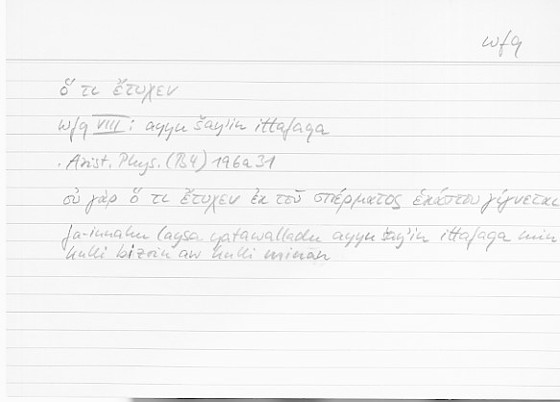 wfq
ὅ τι ἔτυχεν
wfq VIII: ayyu šayʾin ittafaqa
. Arist. Phys. (B4) 196a31
οὐ γὰρ ὅ τι ἔτυχεν ἐκ τοῦ σπέρματος ἑκάστου γίγνεται
fa-innahu laysa yatawalladu ayyu šayʾin ittafaqa min
kulli bizrin aw kulli